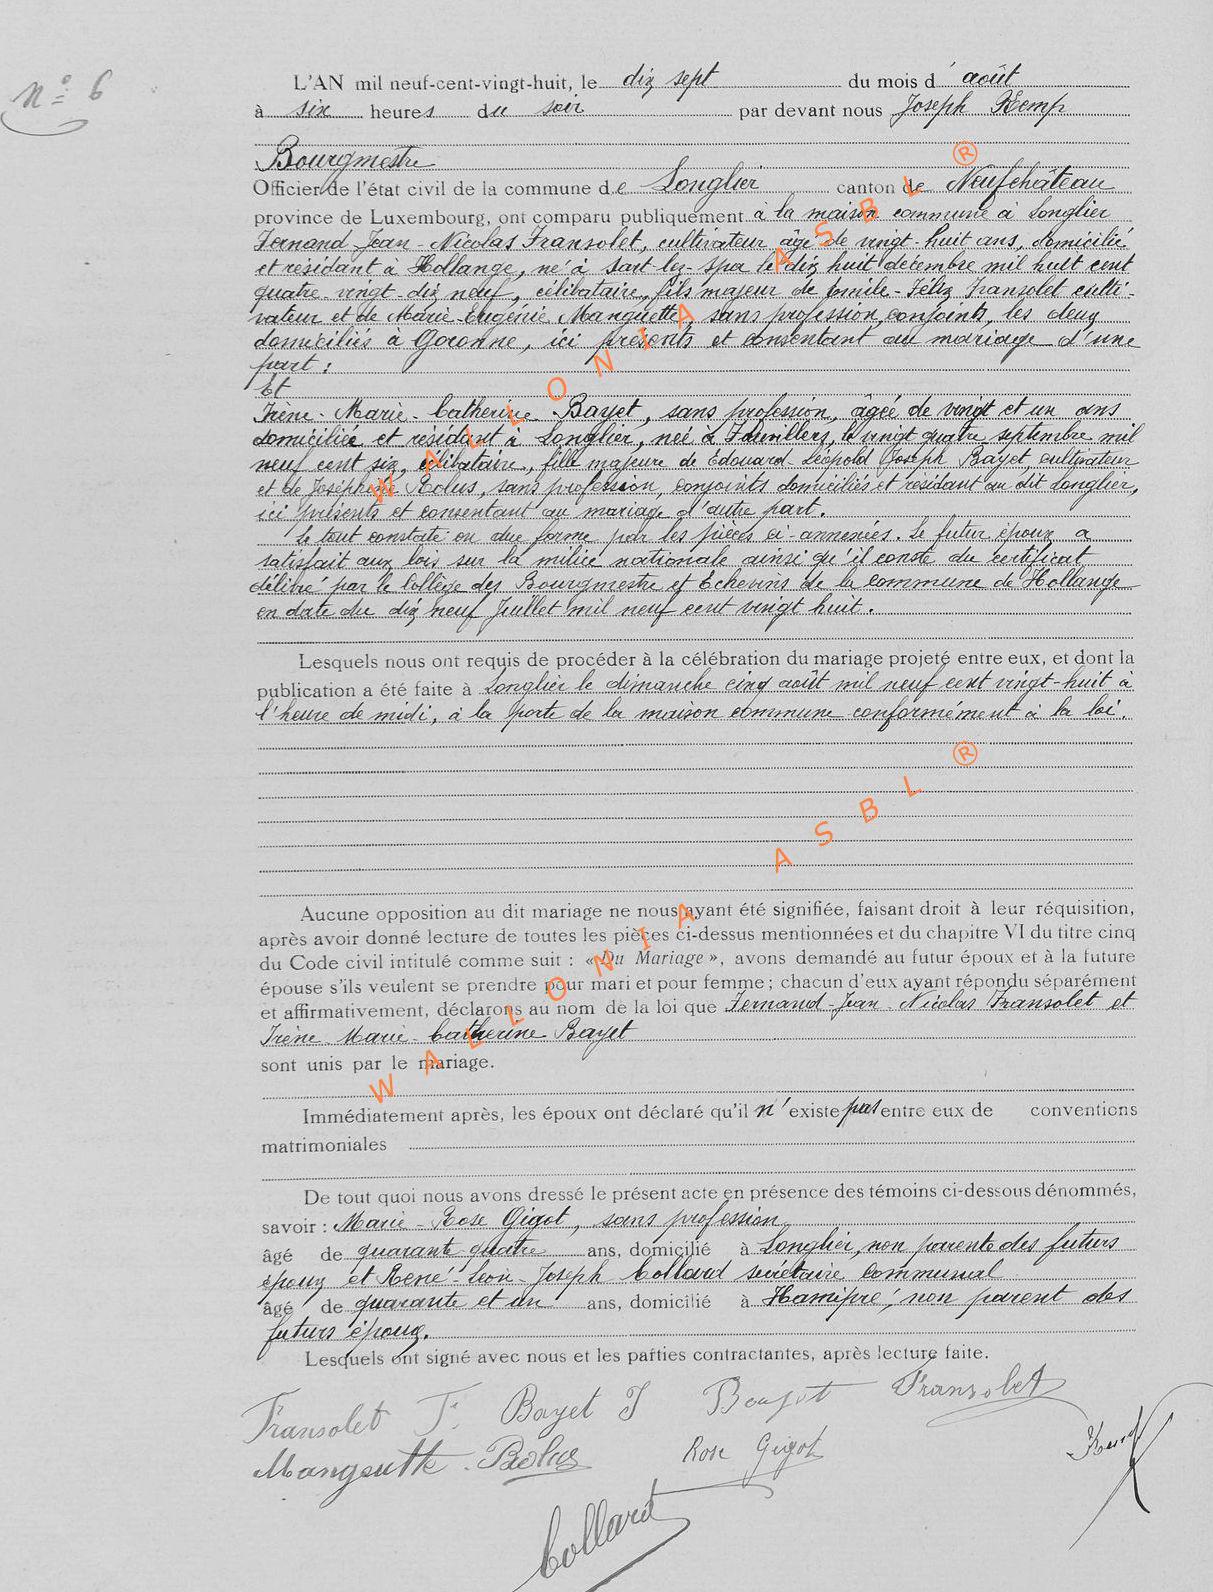 N° 6
L'AN mil neuf-cent-vingt-huit, le dix sept du mois d' août
à six heures du soir par devant nous Joseph Kemp
Bourgmestre
Officier de l'état civil de la commune de Longlier canton de Neufchâteau
province de Luxembourg, ont comparu publiquement à la maison commune à Longlier
Fernand-Jean-Nicolas Fransolet, cultivateur âgé de vingt-huit ans, domicilié
et résidant à Hollange, né à Sart-lez-Spa le dix huit décembre mil huit cent
quatre-vingt-dix neuf, célibataire, fils majeur de Emile-Félix Fransolet culti-
vateur et de Marie-Eugénie Manguette, sans profession, conjoints, les deux
domiciliés à Goronne, ici présents et consentant au mariage d'une
part;
Et
Irène-Marie-Catherine Bayet, sans profession, âgée de vingt et un ans
domiciliée et résidant à Longlier, née à le vingt quatre septembre mil
neuf cent six, célibataire, fille majeure de Edouard-Léopold Joseph Bayet, cultivateur
et de Joséphine Rolus, sans profession, conjoints domiciliés et résidant au dit Longlier,
ici présents et consentant au mariage d'autre part.
Le tout constaté en due forme par les pièces ci-annexées. Le futur époux a
satisfait aux lois sur la milice nationale ainsi qu'il conste du certificat
délivré par le Collège des Bourgmestre et Echevins de la commune de Hollange
en date du dix neuf Juillet mil neuf cent vingt huit.
Lesquels nous ont requis de procéder à la célébration du mariage projeté entre eux, et dont la
publication a été faite à Longlier le dimanche cinq août mil neuf cent vingt-huit à
l'heure de midi, à la porte de la maison commune conformément à la loi.
Aucune opposition au dit mariage ne nous ayant été signifiée, faisant droit à leur réquisition,
après avoir donné lecture de toutes les pièces ci-dessus mentionnées et du chapitre VI du titre cinq
du Code civil intitulé comme suit : « Du Mariage », avons demandé au futur époux et à la future
épouse s'ils veulent se prendre pour mari et pour femme ; chacun d'eux ayant répondu séparément
et affirmativement, déclarons au nom de la loi que Fernand-Jean-Nicolas Fransolet et
Irène-Marie-Catherine Bayet
sont unis par le mariage.
Immédiatement après, les époux ont déclaré qu'il n'existe pas entre eux de conventions
matrimoniales
De tout quoi nous avons dressé le présent acte en présence des témoins ci-dessous dénommés,
savoir : Marie-Rose Gigot, sans profession,
âgé de quarante quatre ans, domicilié à Longlier, non parente des futurs
époux et René-Léon-Joseph Collard secrétaire communal
âgé de quarante et un ans, domicilié à Hamipré, non parent des
futurs époux.
Lesquels ont signé avec nous et les parties contractantes, après lecture faite.
Fransolet F. Bayet I Fransolet
Manguette Rolus Rose Gigot Kemp
Collard
WALLONIA ASBL ®
WALLONIA ASBL ®